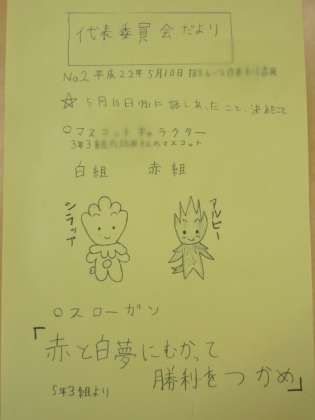 代表委員会だより
No.2 平成22年5月10日
☆ 5月10日(月)に話しあったこと、決めたこと
○マスコットキャラクター
3年3組 のマスコット
白組 赤組
シラップ
アルビー
○スローガン
「赤と白夢にむかって
勝利をつかめ」
5年3組より